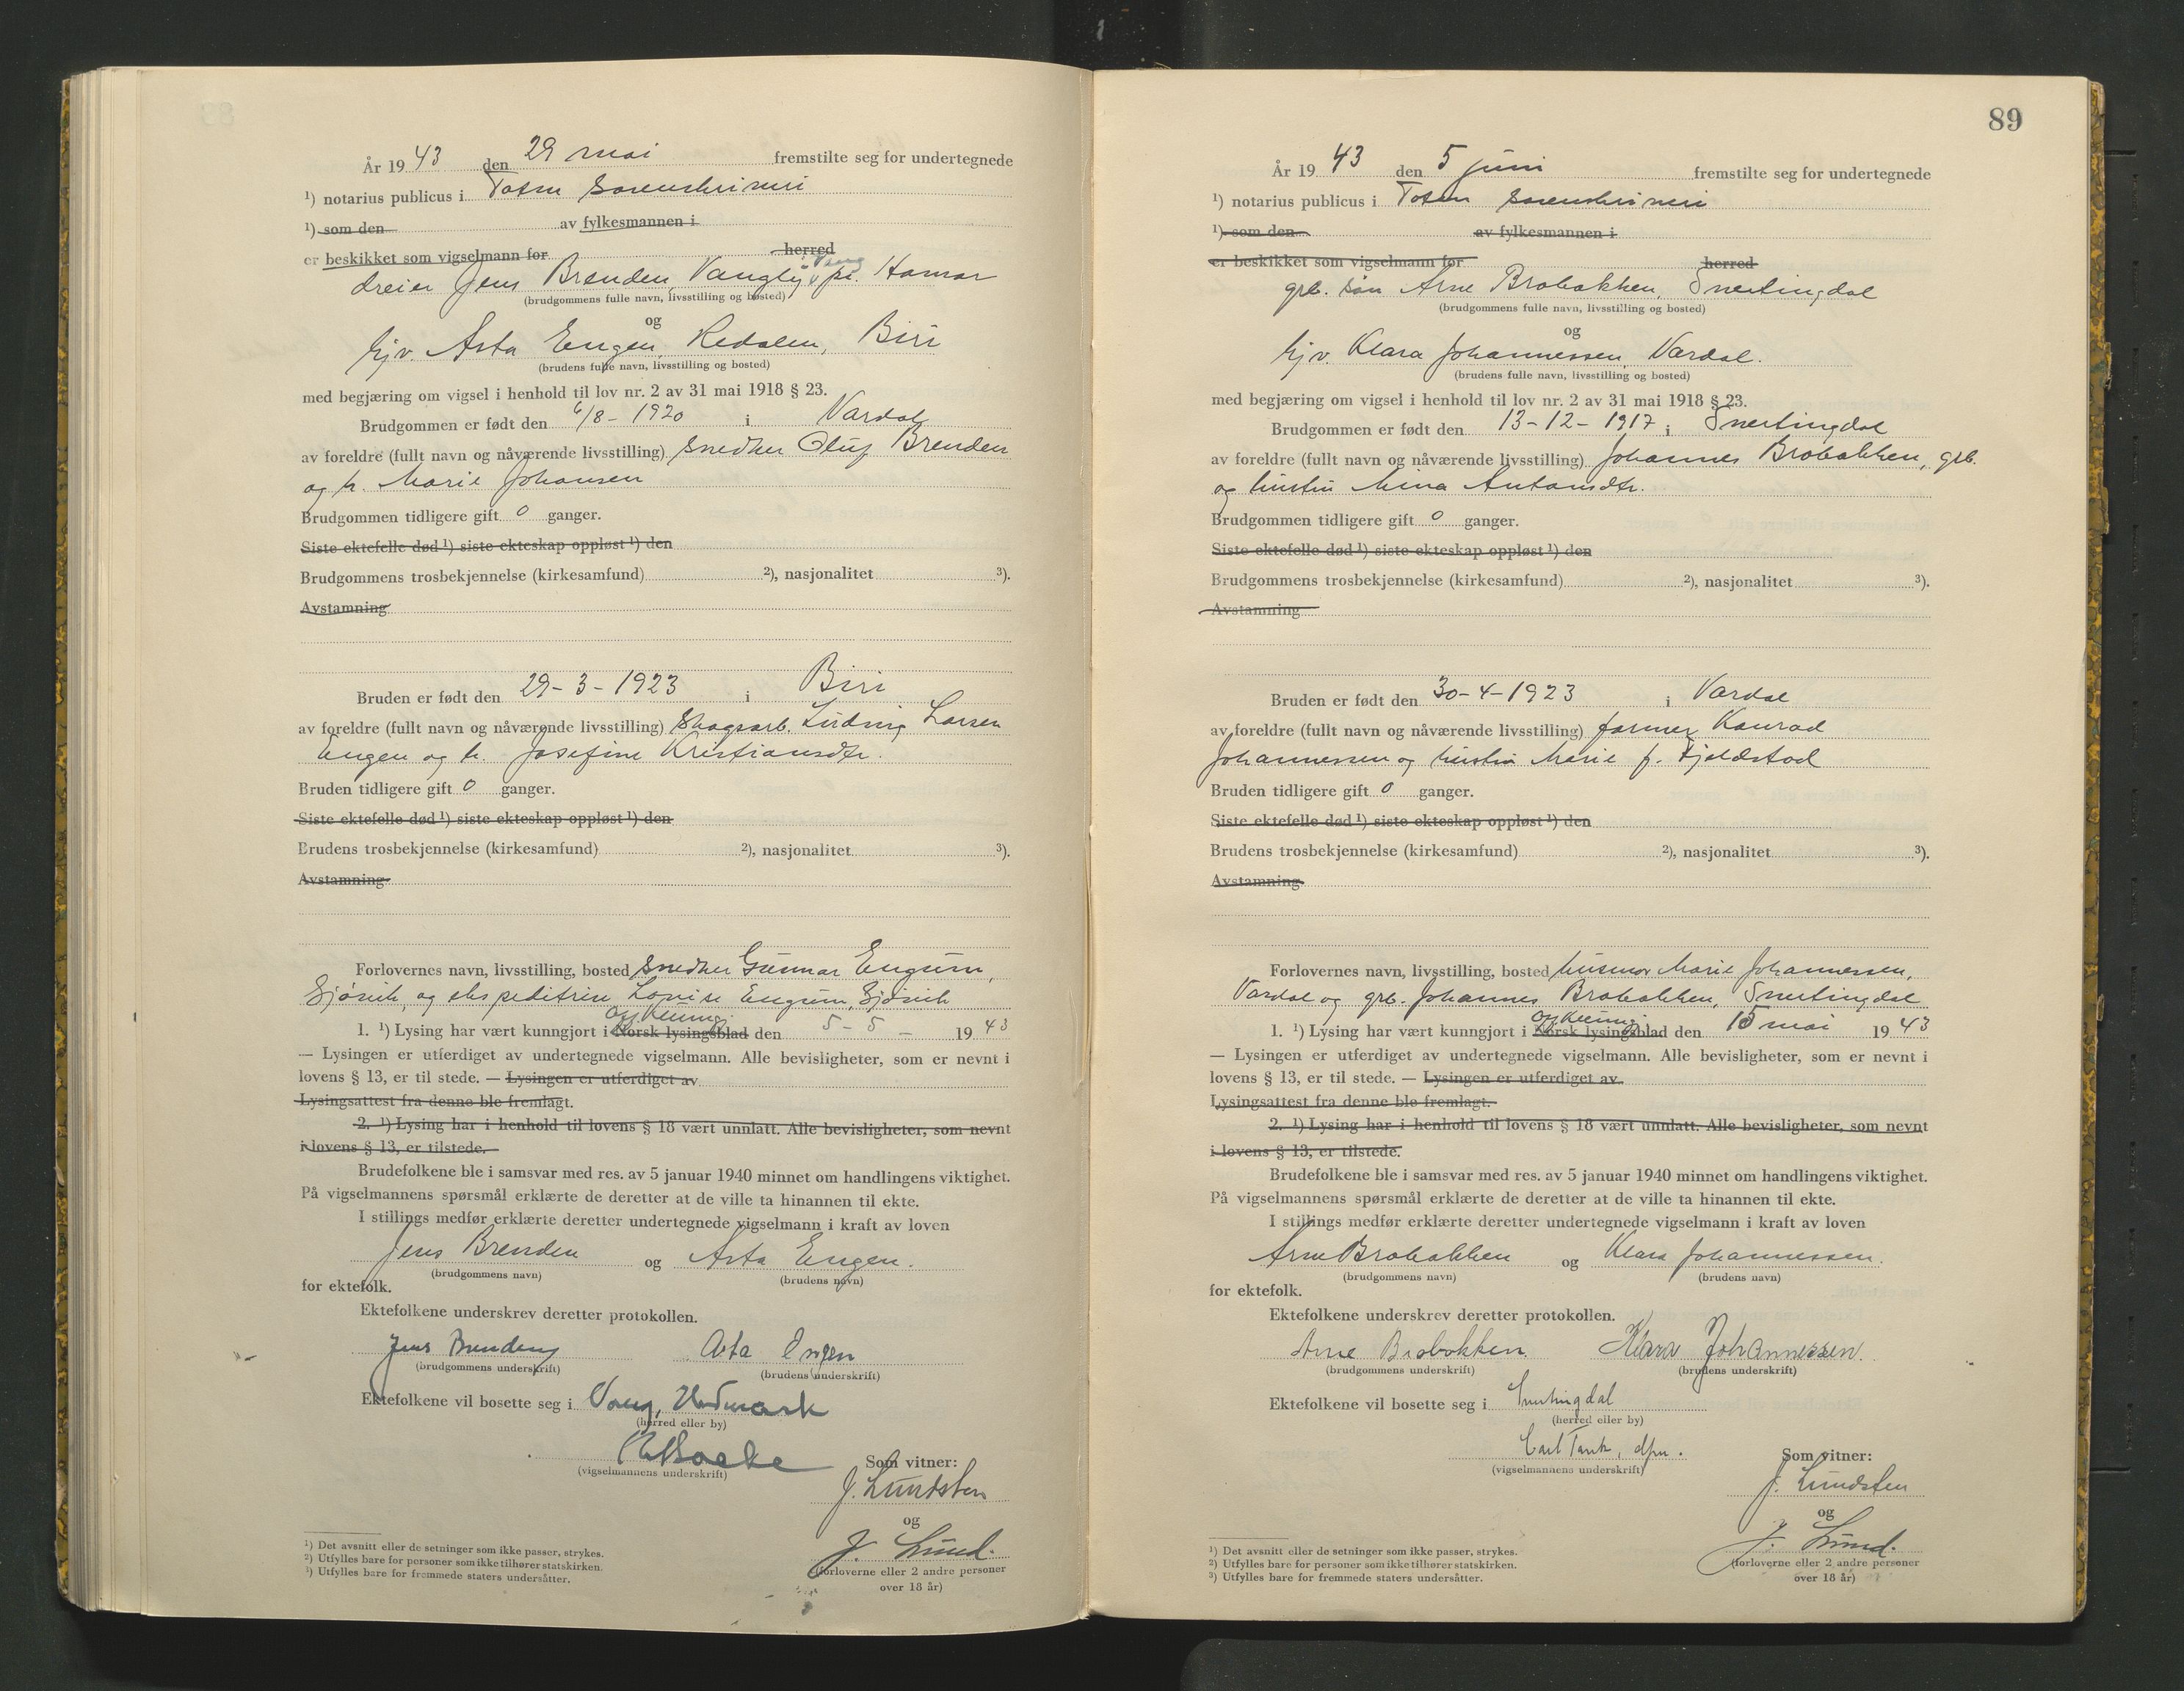 År 1943 den 29 mai fremstilte seg for undertegnede
¹) notarius publicus i Toten Sorenskriveri
¹) som den av fylkesmannen i
er beskikket som vigselmann for herred
dreier Jens Brenden, Vangly Vang pr. Hamar
(brudgommens fulle navn, livsstilling og bosted)
og
hjv. Asta Engen, Redalen, Biri
(brudens fulle navn, livsstilling og bosted)
med begjæring om vigsel i henhold til lov nr. 2 av 31 mai 1918 § 23.
Brudgommen er født den 6/8-1920 i Vardal
av foreldre (fullt navn og nåværende livsstilling) snedker Oluf Brenden
og h. Marie Johansen
Brudgommen tidligere gift 0 ganger.
Siste ektefelle død ¹) siste ekteskap oppløst ¹) den
Brudgommens trosbekjennelse (kirkesamfund) ²), nasjonalitet ³).
Avstamning
Bruden er født den 29-3-1923 i Biri
av foreldre (fullt navn og nåværende livsstilling) Skogsarb. Ludvig Larsen
Engen og h. Josefine Kristiansdtr.
Bruden tidligere gift 0 ganger.
Siste ektefelle død ¹) siste ekteskap oppløst ¹) den
Brudens trosbekjennelse (kirkesamfund) ²), nasjonalitet ³).
Avstamning
Forlovernes navn, livsstilling, bosted snedker Gunnar Engum,
Gjøvik, og ekspeditrise Louise Engum, Gjøvik
off. kunng.
1. ¹) Lysing har vært kunngjort i Norsk lysingsblad den 5-5- 1943
— Lysingen er utferdiget av undertegnede vigselmann. Alle bevisligheter, som er nevnt i
lovens § 13, er til stede. — Lysingen er utferdiget av
Lysingsattest fra denne ble fremlagt.
2. ¹) Lysing har i henhold til lovens § 18 vært unnlatt. Alle bevisligheter, som nevnt
i lovens § 13, er tilstede.
Brudefolkene ble i samsvar med res. av 5 januar 1940 minnet om handlingens viktighet.
På vigselmannens spørsmål erklærte de deretter at de ville ta hinannen til ekte.
I stillings medfør erklærte deretter undertegnede vigselmann i kraft av loven
Jens Brenden og Asta Engen.
(brudgommens navn) (brudens navn)
for ektefolk.
Ektefolkene underskrev deretter protokollen.
Jens Brenden Asta Engen
(brudgommens underskrift) (brudens underskrift)
Ektefolkene vil bosette seg i Vang, Hedmark
(herred eller by)
(vigselmannens underskrift)
Som vitner:
J. Lundsten
og
J. Lund.
(forloverne eller 2 andre personer
over 18 år)
¹) Det avsnitt eller de setninger som ikke passer, strykes.
²) Utfylles bare for personer som ikke tilhører statskirken.
³) Utfylles bare for fremmede staters undersåtter.
89
År 1943 den 5 juni fremstilte seg for undertegnede
¹) notarius publicus i Toten Sorenskriveri
¹) som den av fylkesmannen i
er beskikket som vigselmann for herred
grb. sön Arne Brobakken, Snertingdal
(brudgommens fulle navn, livsstilling og bosted)
og
hjv. Klara Johannessen, Vardal.
(brudens fulle navn, livsstilling og bosted)
med begjæring om vigsel i henhold til lov nr. 2 av 31 mai 1918 § 23.
Brudgommen er født den 13-12-1917 i Snertingdal
av foreldre (fullt navn og nåværende livsstilling) Johannes Brobakken, grb.
og hustru Mina Antonsdtr.
Brudgommen tidligere gift 0 ganger.
Siste ektefelle død ¹) siste ekteskap oppløst ¹) den
Brudgommens trosbekjennelse (kirkesamfund) ²), nasjonalitet ³).
Avstamning
Bruden er født den 30-4-1923 i Vardal
av foreldre (fullt navn og nåværende livsstilling) former Konrad
Johannessen og hustru Marie f. Fjeldstad
Bruden tidligere gift 0 ganger.
Siste ektefelle død ¹) siste ekteskap oppløst ¹) den
Brudens trosbekjennelse (kirkesamfund) ²), nasjonalitet ³).
Avstamning
Forlovernes navn, livsstilling, bosted husmor Marie Johannessen,
Vardal og grb. Johannes Brobakken, Snertingdal
off. kunng.
1. ¹) Lysing har vært kunngjort i Norsk lysingsblad den 15 mai 1943
— Lysingen er utferdiget av undertegnede vigselmann. Alle bevisligheter, som er nevnt i
lovens § 13, er til stede. — Lysingen er utferdiget av
Lysingsattest fra denne ble fremlagt.
2. ¹) Lysing har i henhold til lovens § 18 vært unnlatt. Alle bevisligheter, som nevnt
i lovens § 13, er tilstede.
Brudefolkene ble i samsvar med res. av 5 januar 1940 minnet om handlingens viktighet.
På vigselmannens spørsmål erklærte de deretter at de ville ta hinannen til ekte.
I stillings medfør erklærte deretter undertegnede vigselmann i kraft av loven
Arne Brobakken og Klara Johannessen.
(brudgommens navn) (brudens navn)
for ektefolk.
Ektefolkene underskrev deretter protokollen.
Arne Brobakken Klara Johannessen.
(brudgommens underskrift) (brudens underskrift)
Ektefolkene vil bosette seg i Snertingdal
(herred eller by)
Carl Tank, dfm.
(vigselmannens underskrift)
Som vitner:
J. Lundsten
og
J. Lund.
(forloverne eller 2 andre personer
over 18 år)
¹) Det avsnitt eller de setninger som ikke passer, strykes.
²) Utfylles bare for personer som ikke tilhører statskirken.
³) Utfylles bare for fremmede staters undersåtter.